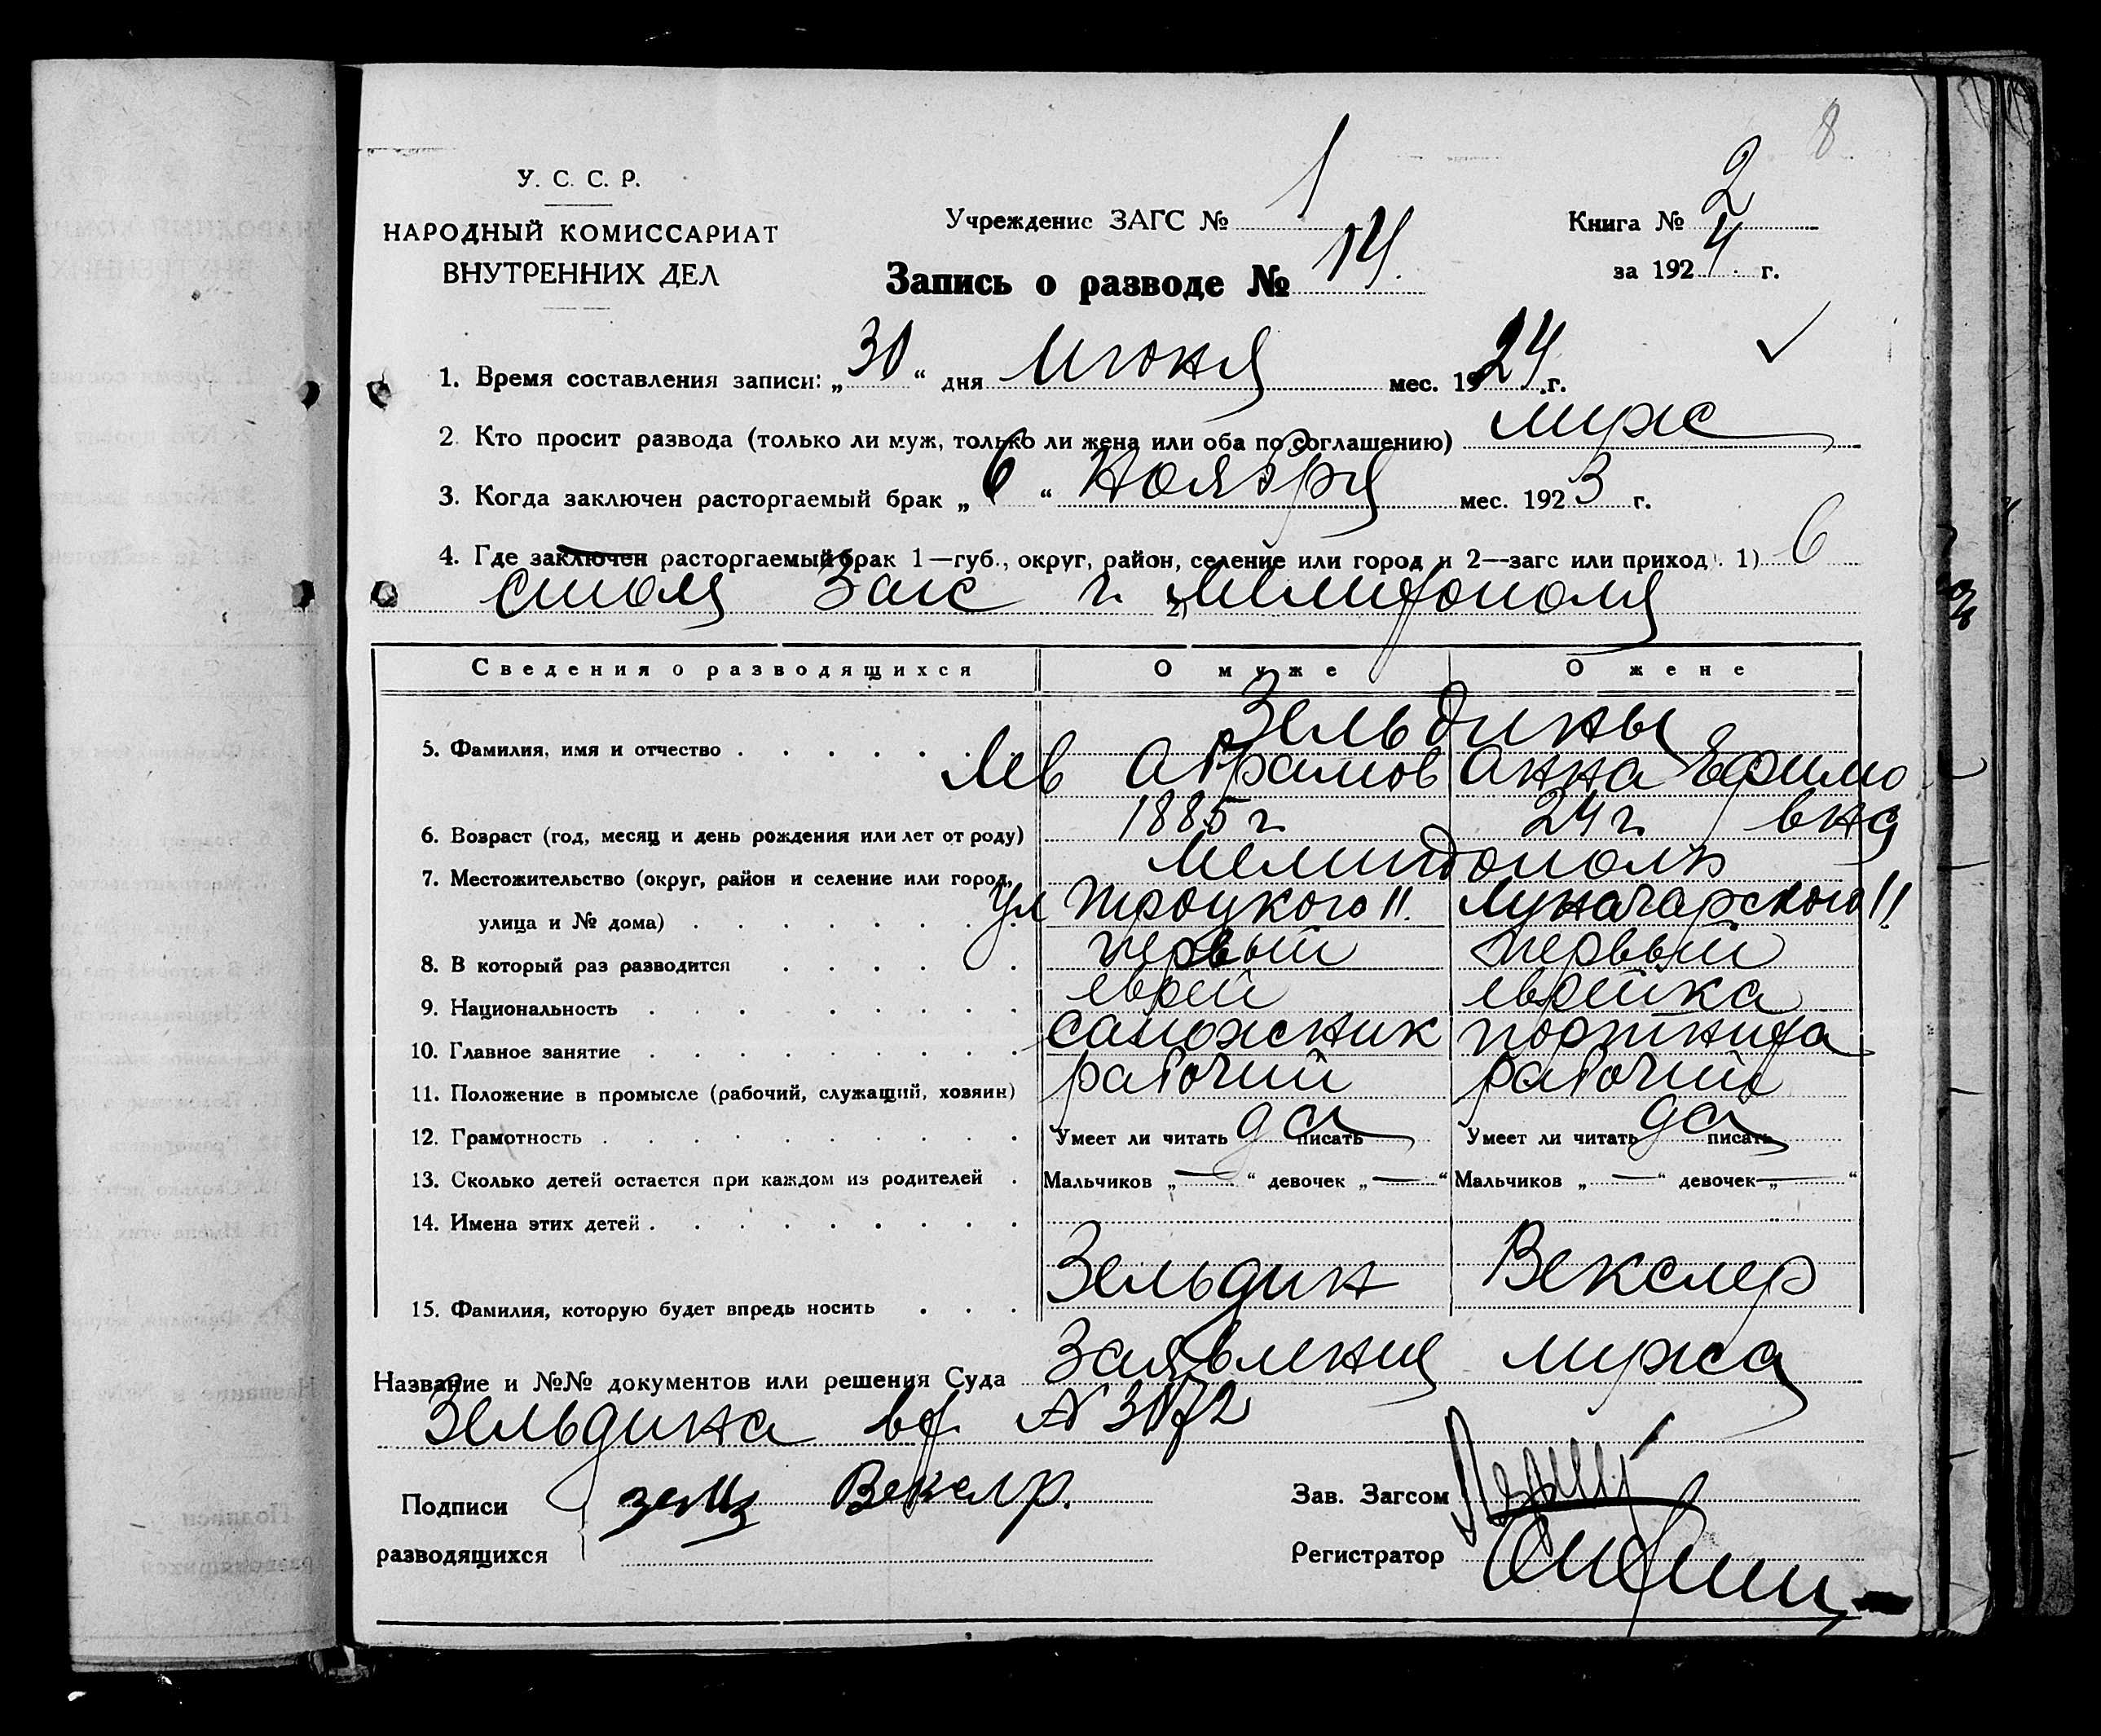 8
У. С. С. Р.
НАРОДНЫЙ КОМИССАРИАТ
ВНУТРЕННИХ ДЕЛ
Учреждение ЗАГС № 1
Книга № 2
за 1924 г.
Запись о разводе № 14.
1. Время составления записи: „30“ дня Июня мес. 1924 г.
2. Кто просит развода (только ли муж, только ли жена или оба по соглашению) муж
3. Когда заключен расторгаемый брак „6“ Ноября мес. 1923 г.
4. Где заключен расторгаемый брак 1—губ., округ, район, селение или город и 2—загс или приход. 1) в
столе Загс г. 2) Мелитополя
Сведения о разводящихся О муже О жене
Зельдины
5. Фамилия, имя и отчество Лев Абрамов Анна Ефимо
вна
6. Возраст (год, месяц и день рождения или лет от роду) 1885 г. 24 г.
7. Местожительство (округ, район и селение или город, Мелитополь
улица и № дома) ул Троцкого 11. Луначарского 11
8. В который раз разводится первый первый
9. Национальность еврей еврейка
10. Главное занятие сапожник портниха
11. Положение в промысле (рабочий, служащий, хозяин) рабочий рабочий
12. Грамотность Умеет ли читать да писать Умеет ли читать да писать
13. Сколько детей остается при каждом из родителей Мальчиков „—“ девочек „—“ Мальчиков „—“ девочек „—“
14. Имена этих детей
15. Фамилия, которую будет впредь носить Зельдин Векслер
Название и №№ документов или решения Суда Заявления мужа
Зельдина вх. N
Подписи Векслр.
разводящихся
Зав. Загсом
Регистратор